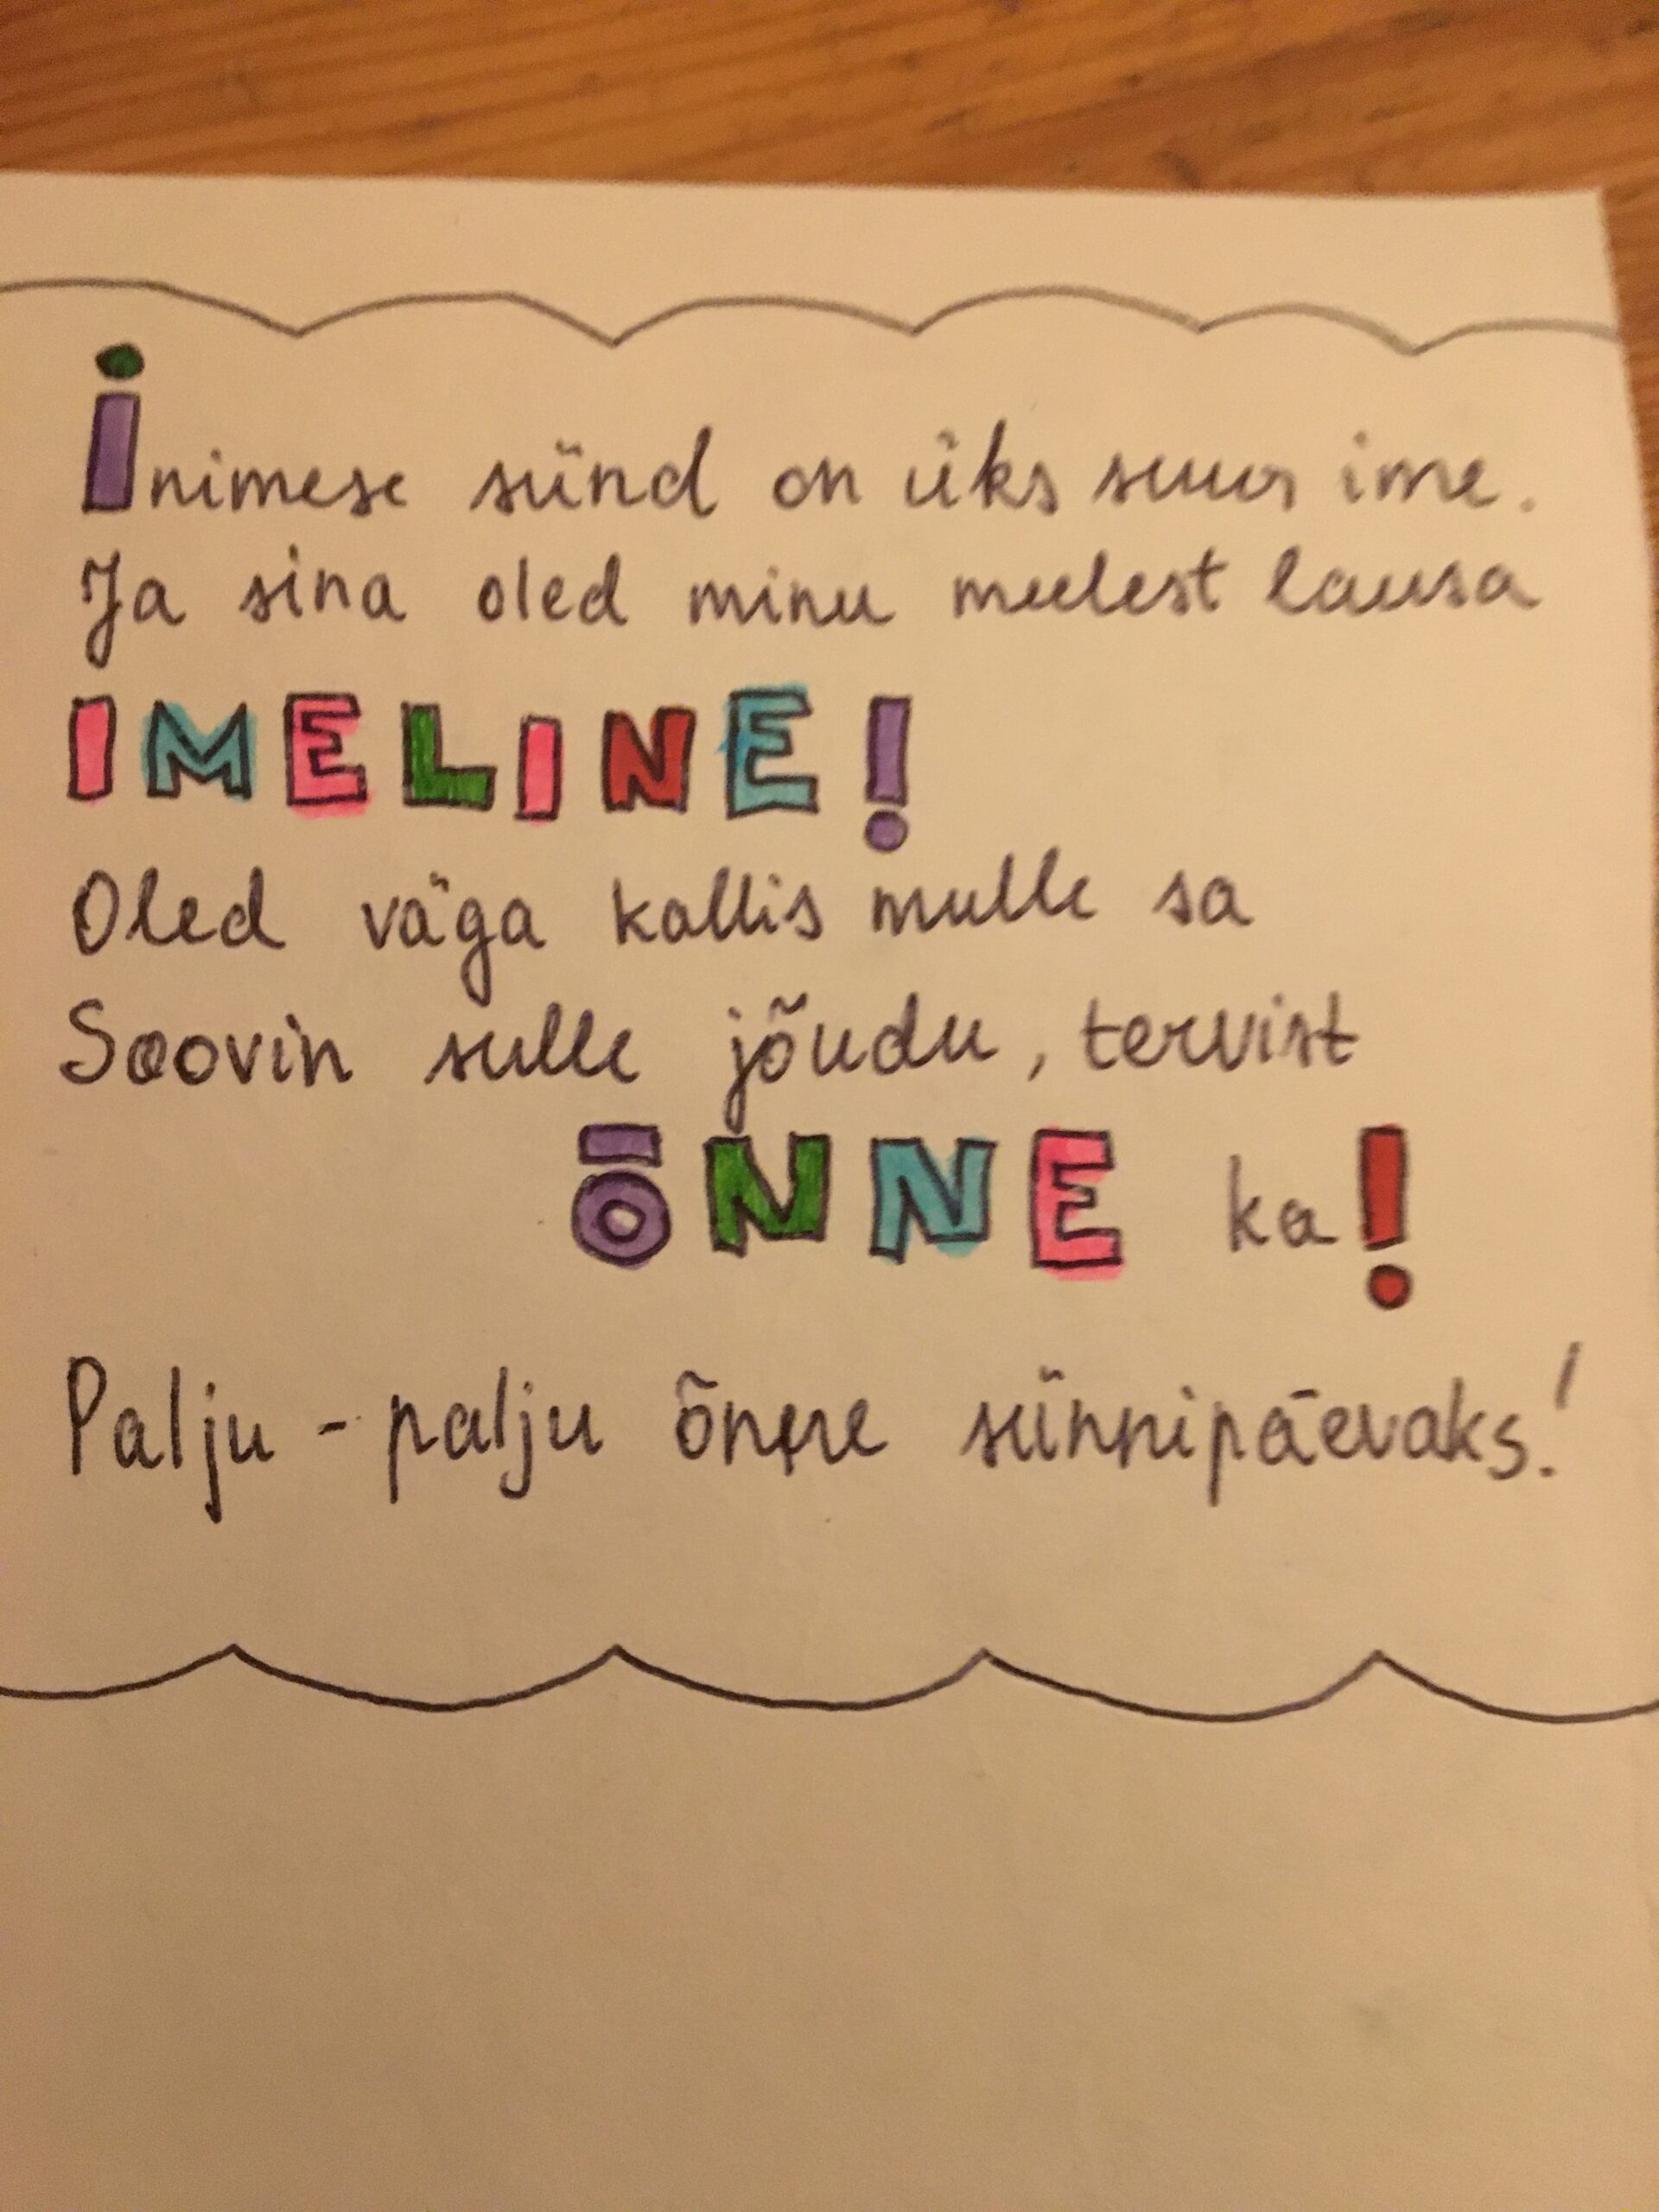 Inimese sünd on üks suur ime.
Ja sina oled minu meelest lausa
IMELINE!
Oled väga kallis mulle sa
Soovin sulle jõudu, tervist
ÕNNE ka!
Palju-palju õnne sünnipäevaks!